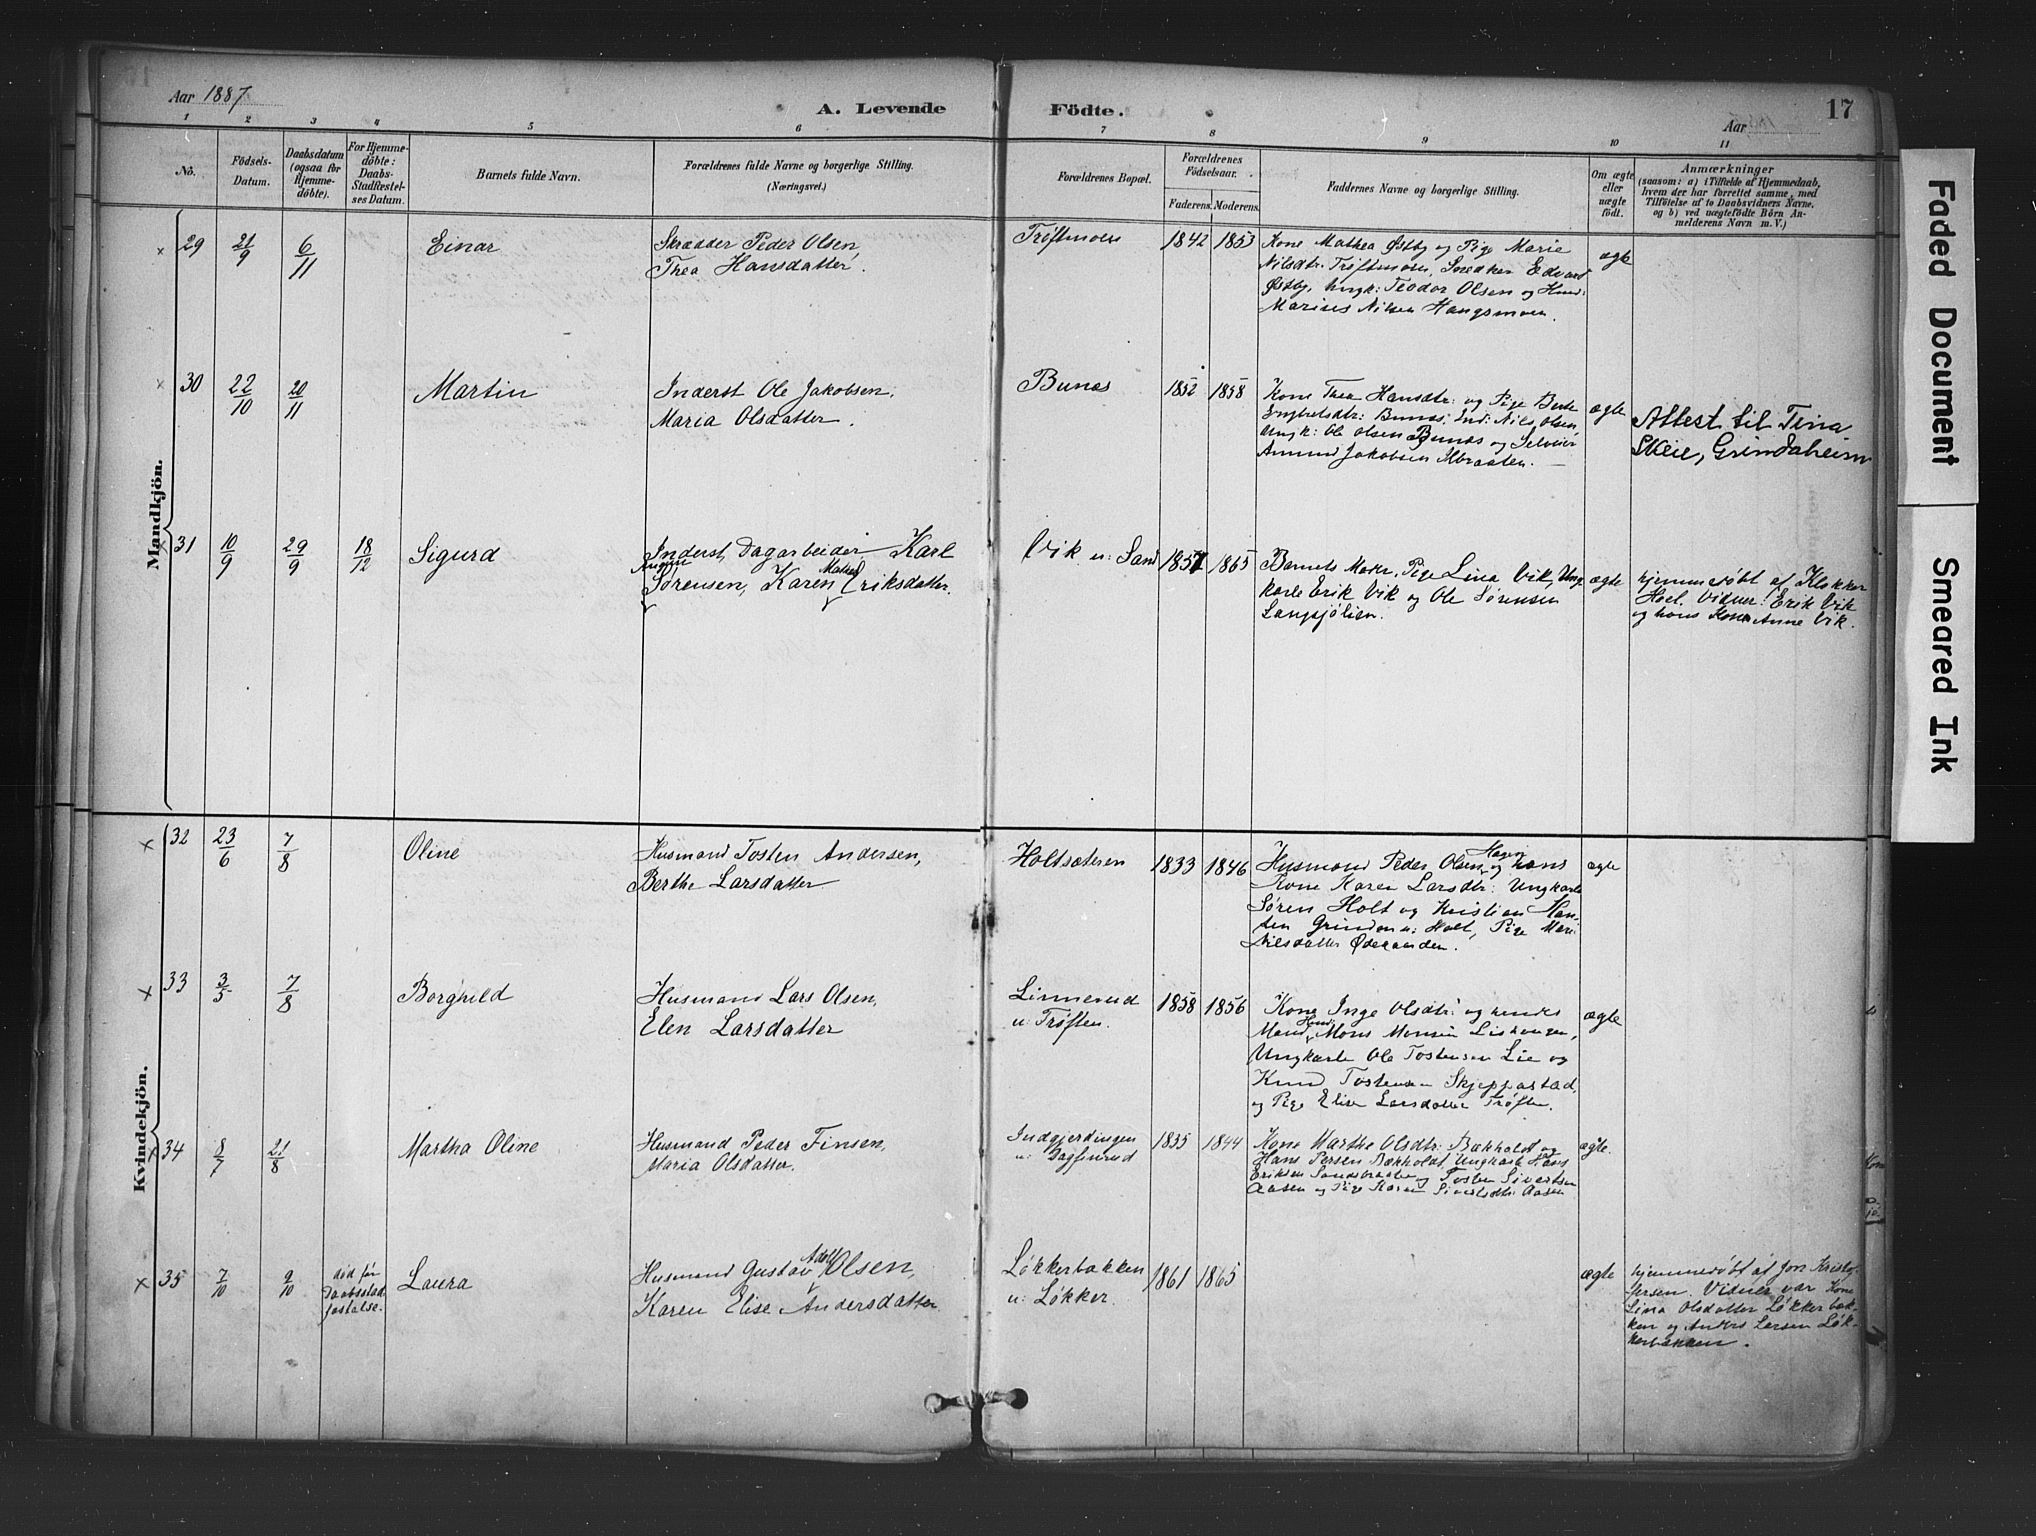 Aar 1887
A. Levende Födte.
17
Aar
1 2 3 4 5 6 7 8 9 10 11
No.
Födsels-
Datum.
Daabsdatum
(ogsaa for
Hjemme-
döbte).
For Hjemme-
döbte:
Daabs-
Stadfæstel-
ses Datum.
Barnets fulde Navn.
Forældrenes fulde Navne og borgerlige Stilling.
(Næringsvei.)
Forældrenes Bopæl.
Forældrenes
Födselsaar.
Faderens. Moderens.
Faddernes Navne og borgerlige Stilling.
Om ægte
eller
uægte
födt.
Anmærkninger
(saasom: a) i Tilfælde af Hjemmedaab,
hvem der har forrettet samme, med
Tilföielse af to Daabsvidners Navne,
og b) ved uægtefödte Börn An-
melderens Navn m. V.)
Mandkjön.
× 29 21/9 6/11 Einar
Skrædder Peder Olsen,
Thea Hansdatter.
Trøftmoen 1842 1853
Kone Mathea Østby og Pige Marie
Nilsdtr. Trøftmoen, Snedker Edvard
Østby, Ungk: Teodor Olsen og
Marius Nilsen Haugsmoen.
ægte
× 30 22/10 20/11 Martin
Inderst Ole Jakobsen,
Maria Olsdatter.
Bunæs 1852 1858
Kone Thea Hansdtr: og Pige Berte
Engbretsdtr: Bunæs, Ind: Nils Olsen,
Ungk: Ole Olsen Bunæs og Selveier
Amund Jakobsen
ægte
Attest til Tina
Skeie, Grindaheim
× 31 10/9 29/9 18/12 Sigurd
Inderst Dagarbeider Karl
August Mathea
Sørensen, Karen Eriksdatter.
Vik u: Sand 1857 1865
Barnets Moder, Pige Lina Vik, Ung-
karle Erik Vik og Ole Sørensen
Langsjølien.
ægte
hjemmedøbt af Klokker
Hoel. Vidner: Erik Vik
og hans Kone Anne Vik.
Kvindekjön.
× 32 23/6 7/8 Oline
Husmand Tosten Andersen,
Berthe Larsdatter
Holtsæteren 1833 1846
Hagen
Husmand Peder Olsen og hans
Kone Karen Larsdtr: Ungkarle
Søren Holt og Kristian
Grinden u: Holt, Pige Mari
Nilsdatter Ødegaarden.
ægte
× 33 3/5 7/8 Borghild
Husmand Lars Olsen,
Elen Larsdatter
Linnerud
u: Trøften. 1858 1856
Kone Inge Olsdtr: og hendes
Mand Mons Monsen
Ungkarle Ole Tostensen Lie og
Knud Tostensen Skjeppestad,
og Pige Elise Larsdatter Trøften.
ægte
× 34 8/7 21/8 Martha Oline
Husmand Peder Finsen,
Maria Olsdatter.
Indgjerdingen
u: Dagfinrud 1835 1844
Kone Marthe Olsdtr: Bækholdt og
Hans Persen Bækholdt, Ungkarle Hans
Eriksen Sandsbraaten og Tosten Sivertsen
Aasen og Pige Karen Sivertsdtr: Aasen
ægte.
× 35 7/10 9/10 død før
Daabsstad-
festelse. Laura
Adolf
Husmand Gustav Olsen,
Karen Elise Andersdatter
Løkkerbakken
u: Løkker. 1861 1865
ægte
hjemmedøbt af Jon Kristof-
fersen. Vidner var Kone
Lina Olsdatter Løkkerbak-
ken og Anders Larsen Løk-
kerbakken.
Faded Document
Smeared Ink